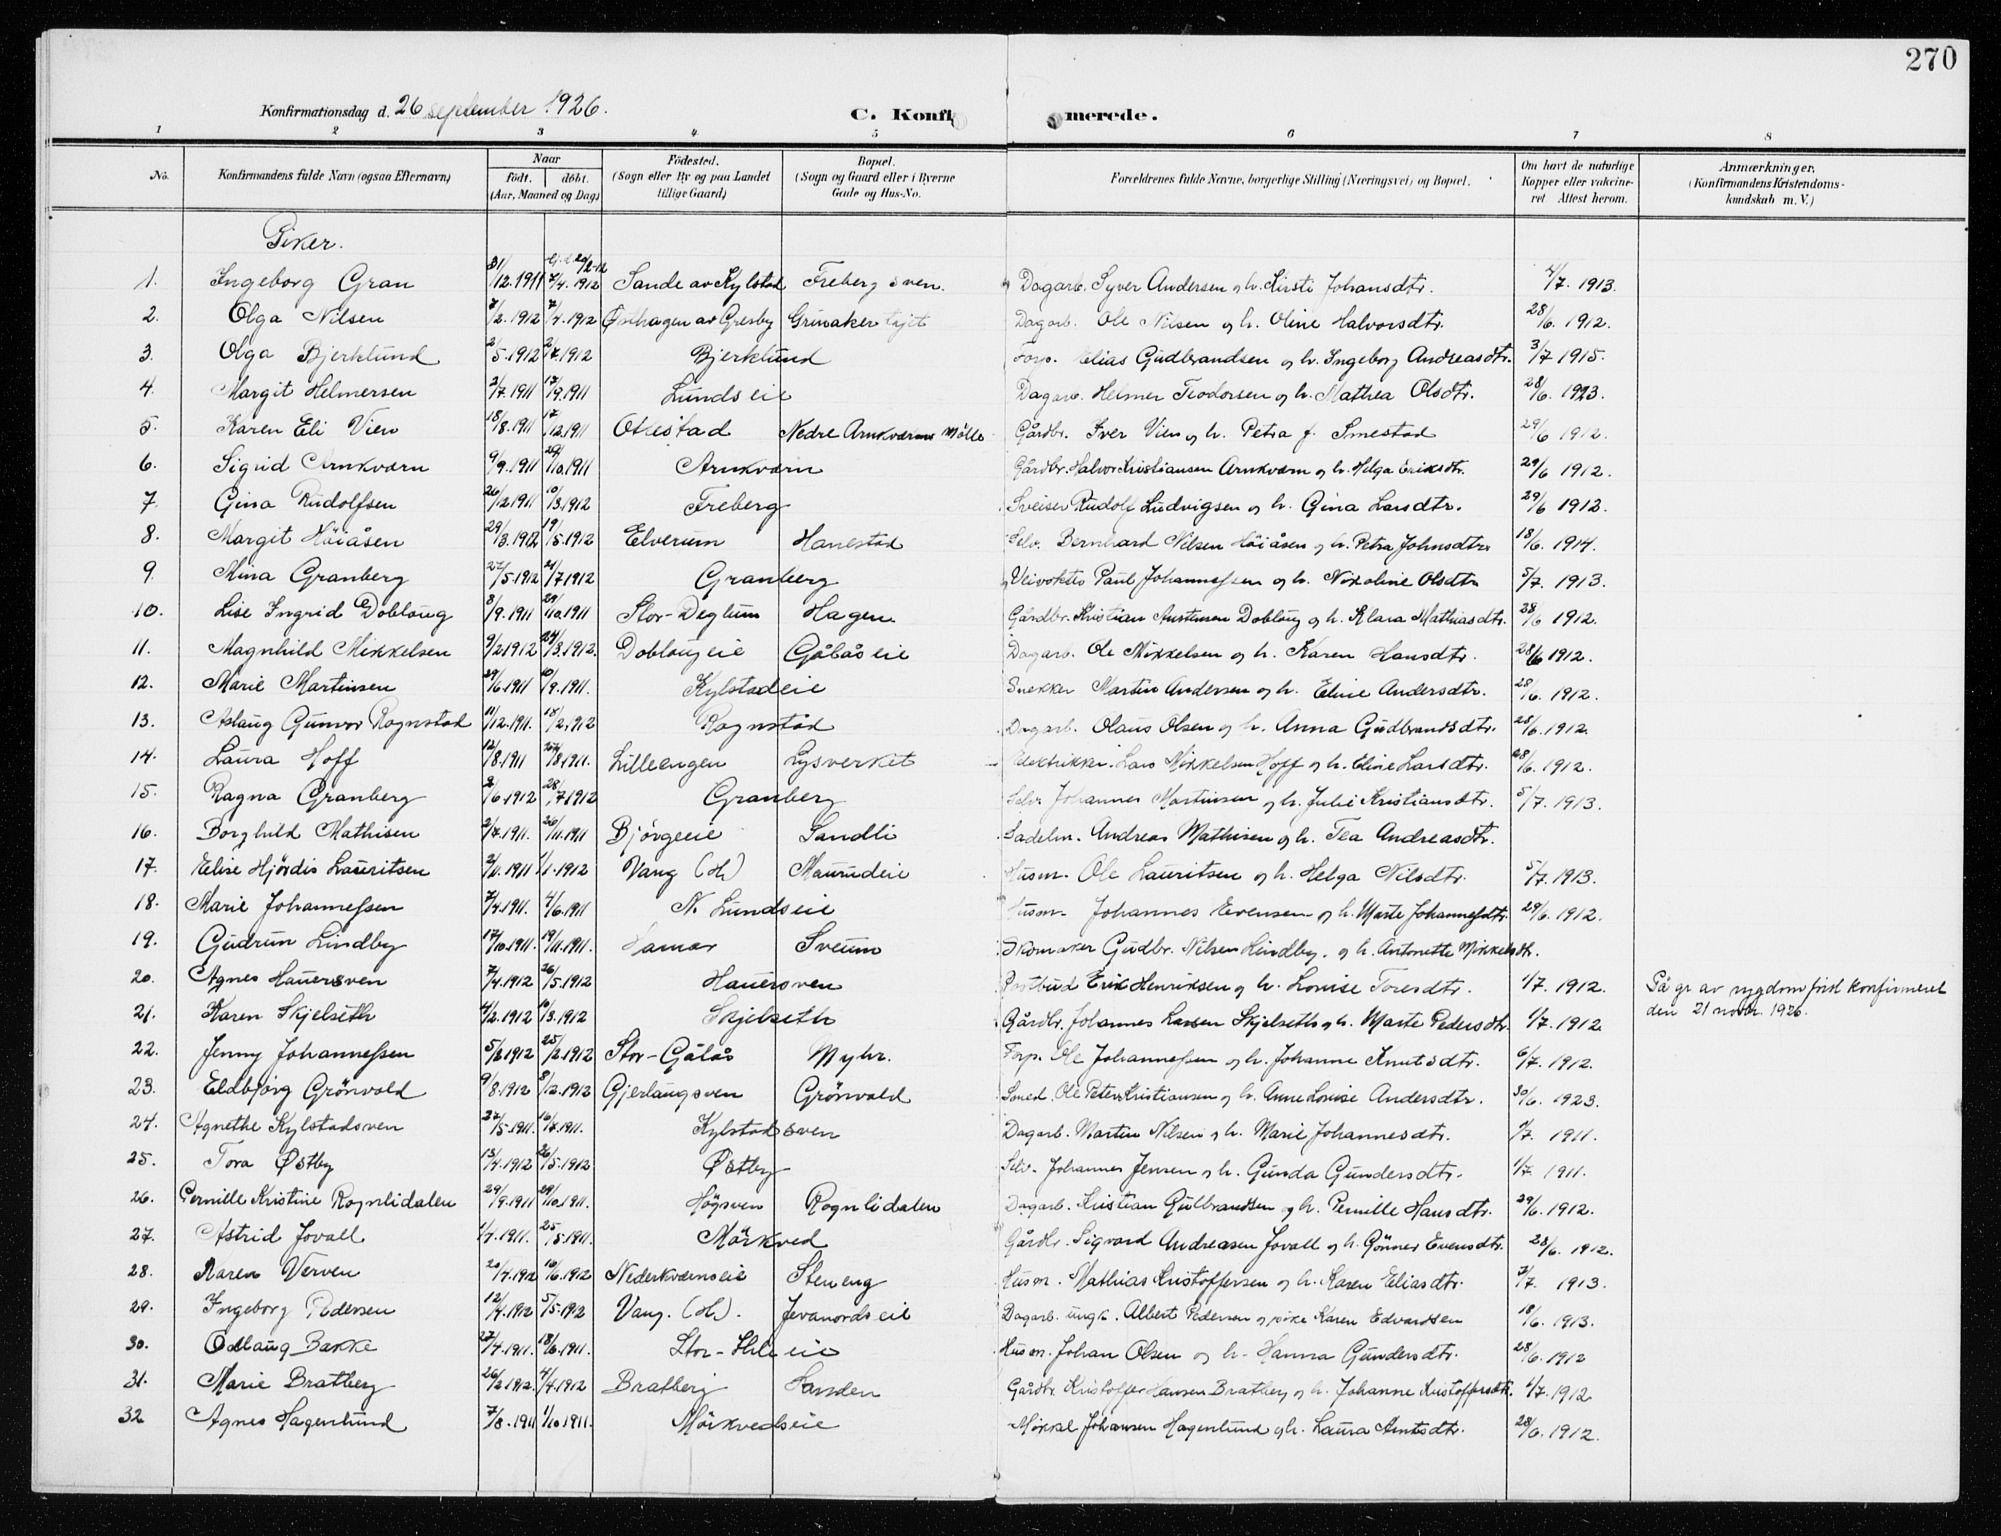 270
Konfirmationsdag d. 26 september 1926.
C. Konfirmerede.
1 2 3 4 5 6 7 8
No. Konfirmandens fulde Navn (ogsaa Efternavn) Naar født. døbt. (Aar, Maaned og Dag) Födested. (Sogn eller By og paa Landet tillige Gaard) Bopæl. (Sogn og Gaard eller i Byerne Gade og Hus-No. Forældrenes fulde Navne, borgerlige Stilling (Næringsvei) og Bopæl. Om havt de naturlige Kopper eller vakcineret Attest herom. Anmærkninger. (Konfirmandens Kristendomskundskab m. V.)
Piker.
1. Ingeborg Gran 31/12.1911 7/4.1912 Sande av Kylstad Freberg sven. Dagarb. Syver Andersen og h. Kirsti Johansdtr. 4/7. 1913.
2. Olga Nilsen 7/2.1912 7/4.1912 Østhagen av Gresby Grinaker Dagarb. Ole Nilsen og h. Oline Halvorsdtr. 28/6. 1912.
3. Olga Bjerklund 2/5.1912 2/7.1912 Bjerklund Forp. Elias Gudbrandsen og h. Ingeborg Andreasdtr. 3/7 1915.
4. Margit Helmersen 2/7.1911 17/9.1911 Lundseie Dagarb. Helmer Teodorsen og h. Mathea Olsdtr. 28/6. 1923.
5. Karen Eli Vien 18/8.1911 17/12.1911 Ottestad Nedre Arnkværns Mølle Gårdbr. Iver Vien og h. Petra f. Smestad 29/6 1912.
6. Sigrid Arnkværn 9/9.1911 29/10.1911 Arnkværn Gårdbr. Halvor Kristiansen Arnkværn og h. Helga Eriksdtr. 29/6 1912.
7. Gina Rudolfsen 26/12.1911 10/3.1912 Freberg Sveiser Rudolf Ludvigsen og h. Gina Larsdtr. 29/6 1912.
8. Margit Höiåsen 29/3.1912 19/5.1912 Elverum Hanestad Selv. Bernhard Nilsen Höiåsen og h. Petra Johnsdtr. 18/6. 1914.
9. Mina Granberg 27/5.1912 21/7.1912 Granberg Veivokter Paul Johannessen og h. Nikoline Olsdtr 5/7. 1913.
10. Lise Ingrid Dobloug 8/9.1911 29/10.1911 Stor-Deglum Hagen Gårdbr. Kristian Austensen Dobloug og h. Klara Mathiasdtr. 28/6 1912.
11. Magnhild Mikkelsen 9/2.1912 24/3.1912. Doblougeie Gålåseie Dagarb. Ole Mikkelsen og h. Karen Hansdtr. 28/6 1912.
12. Marie Martinsen 29/6.1911 10/9.1911. Kylstadeie Snekker Martin Andersen og h. Eline Andersdtr. 28/6. 1912.
13. Aslaug Gunvor Rognstad 11/12.1911. 18/2.1912 Rognstad Dagarb. Olaus Olsen og h. Anna Gudbrandsdtr. 28/6. 1912.
14. Laura Hoff 12/8.1911 27/8.1911. Lilleengen Lysverket Elektriker. Lars Mikkelsen Hoff og h. Eline Larsdtr. 28/6. 1912.
15. Ragna Granberg 2/6.1912 28/7.1912 Granberg Selv. Johannes Martinsen og h. Julie Kristiansdtr. 5/7. 1913.
16. Borghild Mathisen 2/7.1911. 26/11.1911 Bjørgeeie Sandli Sadelm. Andreas Mathisen og h. Tea Andreasdtr.
17. Elise Hjördis Lauritsen 2/11.1911 1/1.1912 Vang (H) Maurudeie Husm. Ole Lauritsen og h. Helga Nilsdtr. 5/7. 1913.
18. Marie Johannessen 7/4.1911. 4/6.1911 N. Lundseie Husm. Johannes Evensen og h. Marte Johannesdtr. 29/6. 1912.
19. Gudrun Lindby 17/10.1911. 19/11.1911. Hamar Sveum Skomaker Gudbr. Nilsen Lindby. og h. Antonette Mikkelsdtr.
20. Agnes Hauersven 7/4.1912 26/5.1912 Hauersven Postbud Erik Henriksen og h. Louise Toresdtr. 1/7. 1912. På gr av sygdom först konfirmeret
den 21 novbr. 1926.
21. Karen Skjelseth 4/2.1912 10/3.1912 Skjelseth Gårdbr. Johannes Larsen Skjelseth og h. Marte Pedersdtr. 1/7. 1912
22. Jenny Johannessen 5/2.1912 25/2.1912 Stor-Gålås Myhr. Forp. Ole Johannessen og h. Johanne Knutsdtr. 6/7. 1912.
23. Eldbjörg Grönvold 9/8.1912 8/12.1912 Gjerlaugsven Grönvold Smed. Ole Peter Kristiansen og h. Anne Louise Andersdtr. 30/6. 1923.
24. Agnethe Kylstadsven 27/5.1911. 16/7.1911. Kylstadsven Dagarb. Martin Nilsen og h. Marie Johannesdtr. 1/7. 1911.
25. Tora Østby 13/4.1912 26/5.1912 Østby Selv. Johannes Jensen og h. Gunda Gundersdtr. 1/7 1911.
26. Pernille Kristine Rognlidalen 29/9.1911 29/10.1911. Högsven Rognlidalen Dagarb. Kristian Gulbrandsen og h. Pernille Hansdtr. 29/6. 1912.
27. Astrid Jovall 1/4.1911. 25/5.1911. Mörkved Gårdbr. Sigvard Andreasen Jovall og h. Gönner Evensdtr. 28/6. 1912.
28. Karen Verven 20/4.1912 16/6.1912 Nederkværnseie Steneng Husm. Mathias Kristoffersen og h. Karen Eliasdtr. 3/7. 1913.
29. Ingeborg Pedersen 12/4.1912 5/5.1912 Vang. (H). Jevanordseie Dagarb. ungk. Albert Pedersen og pike Karen Edvardsen 18/6. 1913.
30. Odlaug Bakke 27/4.1911. 18/6.1911. Stor-Ihleeie Husm. Johan Olsen og h. Hanna Gundersdtr. 28/6. 1912
31. Marie Bratberg 26/2.1912. 4/4.1912 Bratberg Sanden Gårdbr. Kristoffer Hansen Bratberg og h. Johanne Kristoffersdtr. 1/7. 1912
32 Agnes Hagenlund 7/8.1911 1/10.1911. Mörkvedseie Mikkel Johansen Hagenlund og h. Laura Arntsdtr. 28/6. 1912.